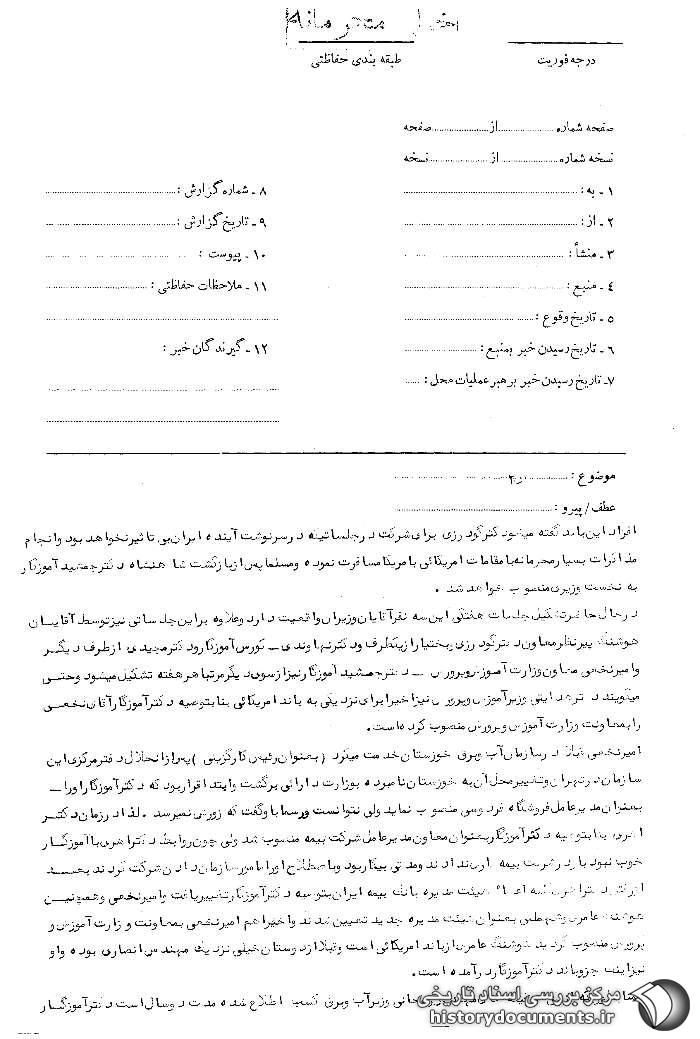 خیلی محرمانه
درجه فوریت
طبقه بندی حفاظتی
صفحه شماره ......... از ......... صفحه
نسخه شماره ......... از ......... نسخه
۱ ـ به :
۲ ـ از :
۳ ـ منشأ :
٤ ـ منبع :
۵ ـ تاریخ وقوع :
٦ ـ تاریخ رسیدن خبر بمنبع :
۷ـ تاریخ رسیدن خبر برهبر عملیات محل :
۸ ـ شماره گزارش :
۹ ـ تاریخ گزارش :
۱۰ ـ پیوست :
۱۱ ـ ملاحظات حفاظتی :
۱۲ ـ گیرندگان خبر :
موضوع :
عطف / پیرو :
افراد این باند گفته میشود دکتر گودرزی برای شرکت در جلساتیکه در سرنوشت آینده ایران بی تاثیر نخواهد بود و انجام
مذاکرات بسیار محرمانه با مقامات امریکائی با مریکا مسافرت نموده و مسلما پس از بازگشت شاهنشاه دکتر جمشید آموزگار
به نخست وزیری منصوب خواهد شد .
در حال حاضر تشکیل جلسات هفتگی این سه نفر آقایان وزیران واقعیت دارد و علاوه براین جلساتی نیز توسط آقایان
هوشنگ پیرنظر معاون دکتر گودرزی و بختیار از یکطرف و دکتر نهاوندی ـ کورس آموزگار و دکتر مجیدی از طرف دیگر
و امیر نخعی معاون وزارت آموزش و پرورش ـ دکتر جمشید آموزگار نیز از سوی دیگر مرتبا هر هفته تشکیل میشود و حتی
میگویند دکتر هدایتی وزیر آموزش و پرورش نیز اخیرا برای نزدیکی به باند امریکائی بنا بتوصیه دکتر آموزگار آقای نخعی
را بمعاونت وزارت آموزش و پرورش منصوب کرده است.
امیر نخعی قبلا در سازمان آب و برق خوزستان خدمت میکرد ( بعنوان رئیس کارگزینی ) پس از انحلال دفتر مرکزی این
سازمان در تهران و تغییر محل آن به خوزستان نامبرده بوزارت دارائی برگشت و ابتدا قرار بود که دکتر آموزگار او را ـ
بعنوان مدیر عامل فروشگاه فردوسی منصوب نماید ولی نتوانست و رسما با وگفت که زورش نمیرسد . لذا در زمان دکتر
بنا بتوصیه دکتر آموزگار بعنوان معاون مدیر عامل شرکت بیمه منصوب شد ولی چون روابط دکتر با آموزگار
خوب نبود در شرکت بیمه ندادند و مدتی بیکار بود و باصطلاح او را مامور سازمان دادن شرکت کردند بعد
هیئت مدیره بیمه ایران بتوصیه دکتر آموزگار تغییر یافت و امیر نخعی و همچنین
هوشنگ عامری بعنوان هیئت مدیره جدید تعیین شدند و اخیرا هم امیر نخعی بمعاونت وزارت آموزش و
پرورش منصوب گردید هوشنگ عامری از باند امریکائی است و قبلا از دوستان خیلی نزدیک مهندس انصاری بوده و او
نیز اینک جزو باند دکتر آموزگار درآمده است .
وزیر آب و برق کسب اطلاع شده مدت دو سال است دکتر آموزگار
مرکز بررسی اسناد تاریخی
historydocuments.ir